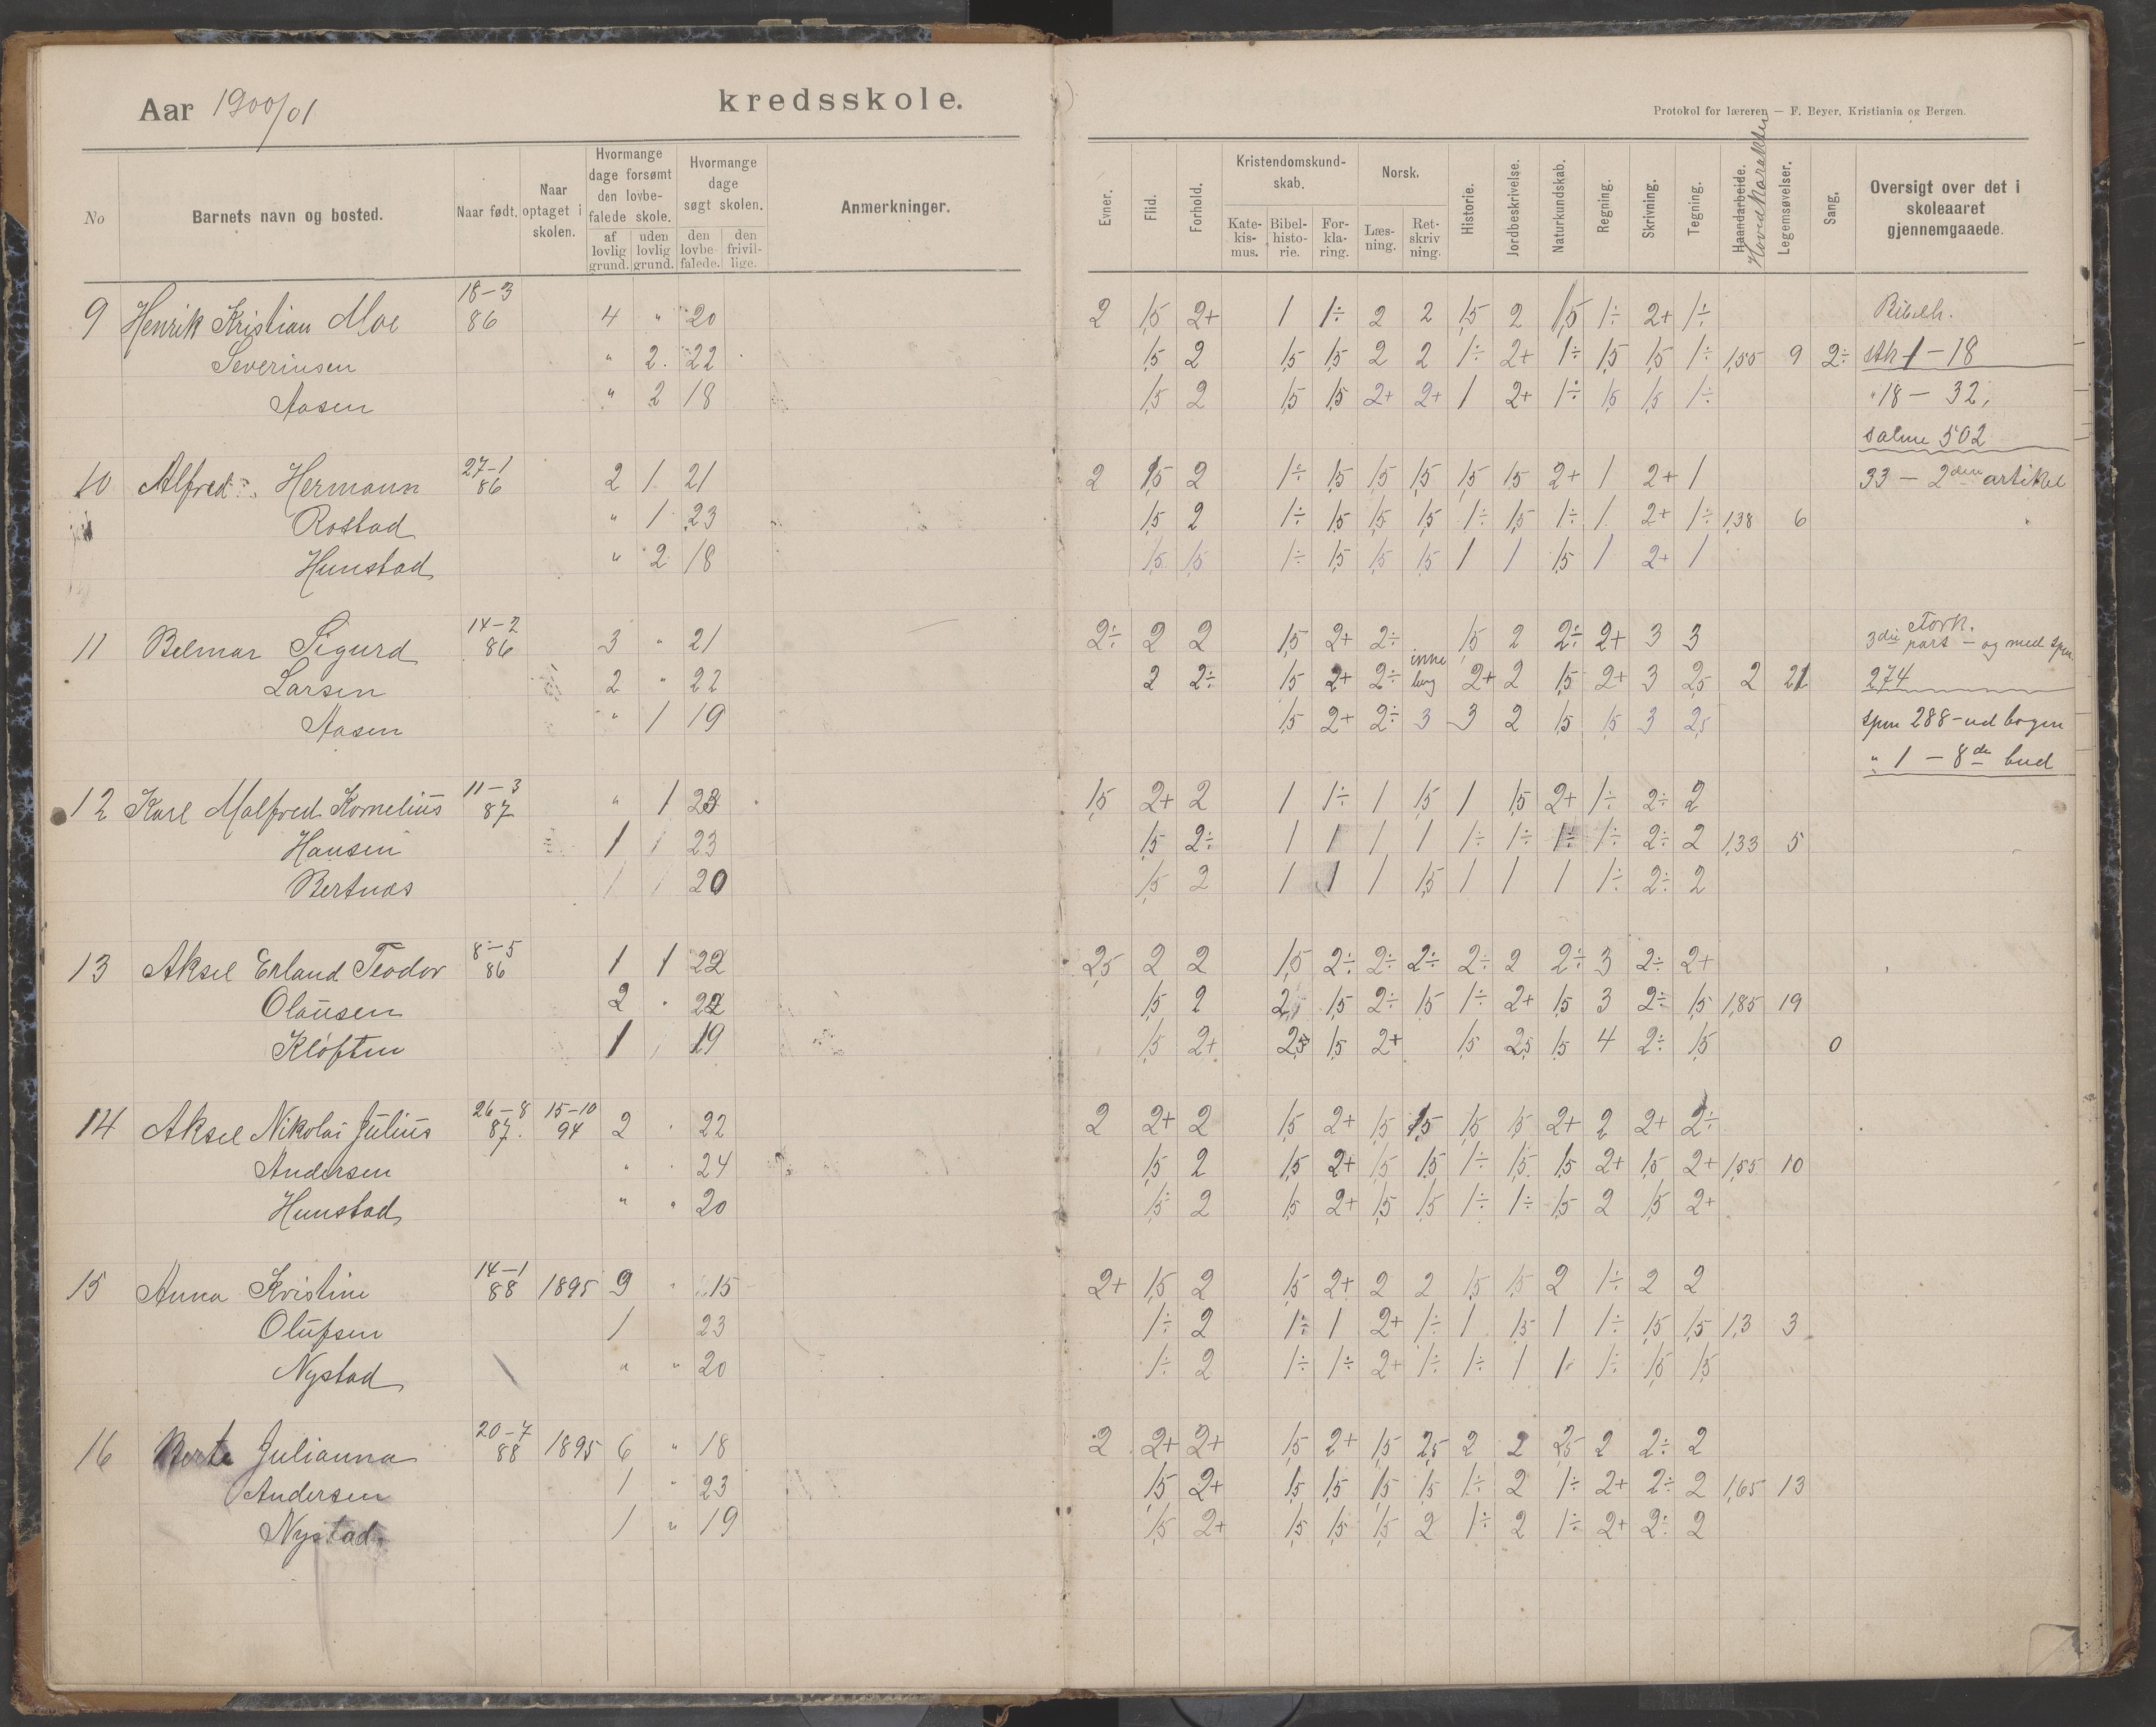 Aar 1900/01 kredsskole.
Protokol for læreren — F. Beyer, Kristiania og Bergen.
No Barnets navn og bosted. Naar født. Naar optaget i skolen. Hvormange dage forsømt den lovbefalede skole. af lovlig grund. uden lovlig grund. Hvormange dage søgt skolen. den lovbefalede. den frivillige. Anmerkninger. Evner. Flid. Forhold. Kristendomskundskab. Katekismus. Bibelhistorie. Forklaring. Norsk. Læsning. Retskrivning. Historie. Jordbeskrivelse. Naturkundskab. Regning. Skrivning. Tegning. Haandarbeide. Hovedkarakter Legemsøvelser. Sang. Oversigt over det i skoleaaret gjennemgaaede.
9 Henrik Kristian Moe 18-3 86 4 " 20 2 1,5 2+ 1 1÷ 2 2 1,5 2 1,5 1÷ 2+ 1÷ Bibelh.
Severinsen " 2 22 1,5 2 1,5 1,5 2 2 1÷ 2+ 1÷ 1,5 1,5 1÷ 1,55 9 2÷ stk 1-18
Aasen " 2 18 1,5 2 1,5 1,5 2+ 2+ 1 2+ 1÷ 1,5 1,5 1÷ " 18 - 32,
salme 502
10 Alfred Hermann 27-1 86 2 1 21 2 1,5 2 1÷ 1,5 1,5 1,5 1,5 1,5 2+ 1 2+ 1 33 - 2den artikel
Rostad " 1 23 1,5 2 1÷ 1,5 1,5 1,5 1÷ 1,5 1÷ 1 2+ 1÷ 1,38 6
Hunstad " 2 18 1,5 1,5 1÷ 1,5 1,5 1,5 1 1 1,5 1 2+ 1
11 Belmar Sigurd 14-2 86 3 " 21 2÷ 2 2 1,5 2+ 2÷ 1,5 2 2÷ 2+ 3 3 Fork. 3die part - og med spm.
Larsen 2 " 22 2 2÷ 1,5 2+ 2÷ 2+ 2 1,5 2+ 3 2,5 2 21 274
Aasen " 1 19 1,5 2+ 2÷ 3 3 2 1,5 1,5 3 2,5 spm 288 - ud bogen
" 1 - 8de bud
12 Karl Malfred Kornelius 11-3 87 " 1 23 1,5 2+ 2 1 1÷ 1 1,5 1 1,5 2+ 1÷ 2÷ 2
Hansen 1 1 23 1,5 2÷ 1 1 1 1 1÷ 1÷ 1÷ 1÷ 2÷ 2 1,33 5
Bertnes 1 1 20 1,5 2 1 1 1 1,5 1 1 1 1÷ 2÷ 2
13 Aksel Erland Teodor 8-5 86 1 1 22 2,5 2 2 1,5 2÷ 2÷ 2÷ 2÷ 2 2÷ 3 2÷ 2+
Olausen 2 " 22 1,5 2 2 1,5 2÷ 1,5 1÷ 2+ 1,5 3 2÷ 1,5 1,85 19
Kløften 1 19 1,5 2+ 2,5 1,5 2+ 1,5 2,5 1,5 4 2÷ 1,5 0
14 Aksel Nikolai Julius 26-8 87. 15-10 94 2 " 22 2 2+ 2 1,5 2+ 1,5 1,5 1,5 1,5 2+ 2 2+ 2÷
Andersen " " 24 1,5 2 1,5 2+ 1,5 1,5 1÷ 1,5 1,5 2+ 1,5 2+ 1,55 10
Hunstad " " 20 1,5 2 1,5 2+ 1,5 1,5 1÷ 1÷ 1,5 2 1,5 2+
15 Anna Kristine 14-1 88 1895 9 " 15 2+ 1,5 2 1,5 2+ 2 2 1,5 1,5 2 1÷ 2 2
Olufsen 1 23 1÷ 2 1÷ 1 2+ 1÷ 1 1,5 1 1÷ 1,5 1,5 1,3 3
Nystad " " 20 1÷ 2 1÷ 1÷ 2+ 1÷ 1÷ 1 1 1÷ 1,5 1,5
16 Berte Julianna 20-7 88 1895 6 " 18 2 2+ 2+ 1,5 2+ 1,5 2,5 2 2 2,5 2 2÷ 2
Andersen 1 " 23 1,5 2+ 1,5 1,5 1,5 1,5 1÷ 2 1÷ 2+ 2÷ 2 1,65 13
Nystad 1 " 19 1,5 2+ 1,5 1,5 1,5 2 1÷ 2 1÷ 2+ 2÷ 2